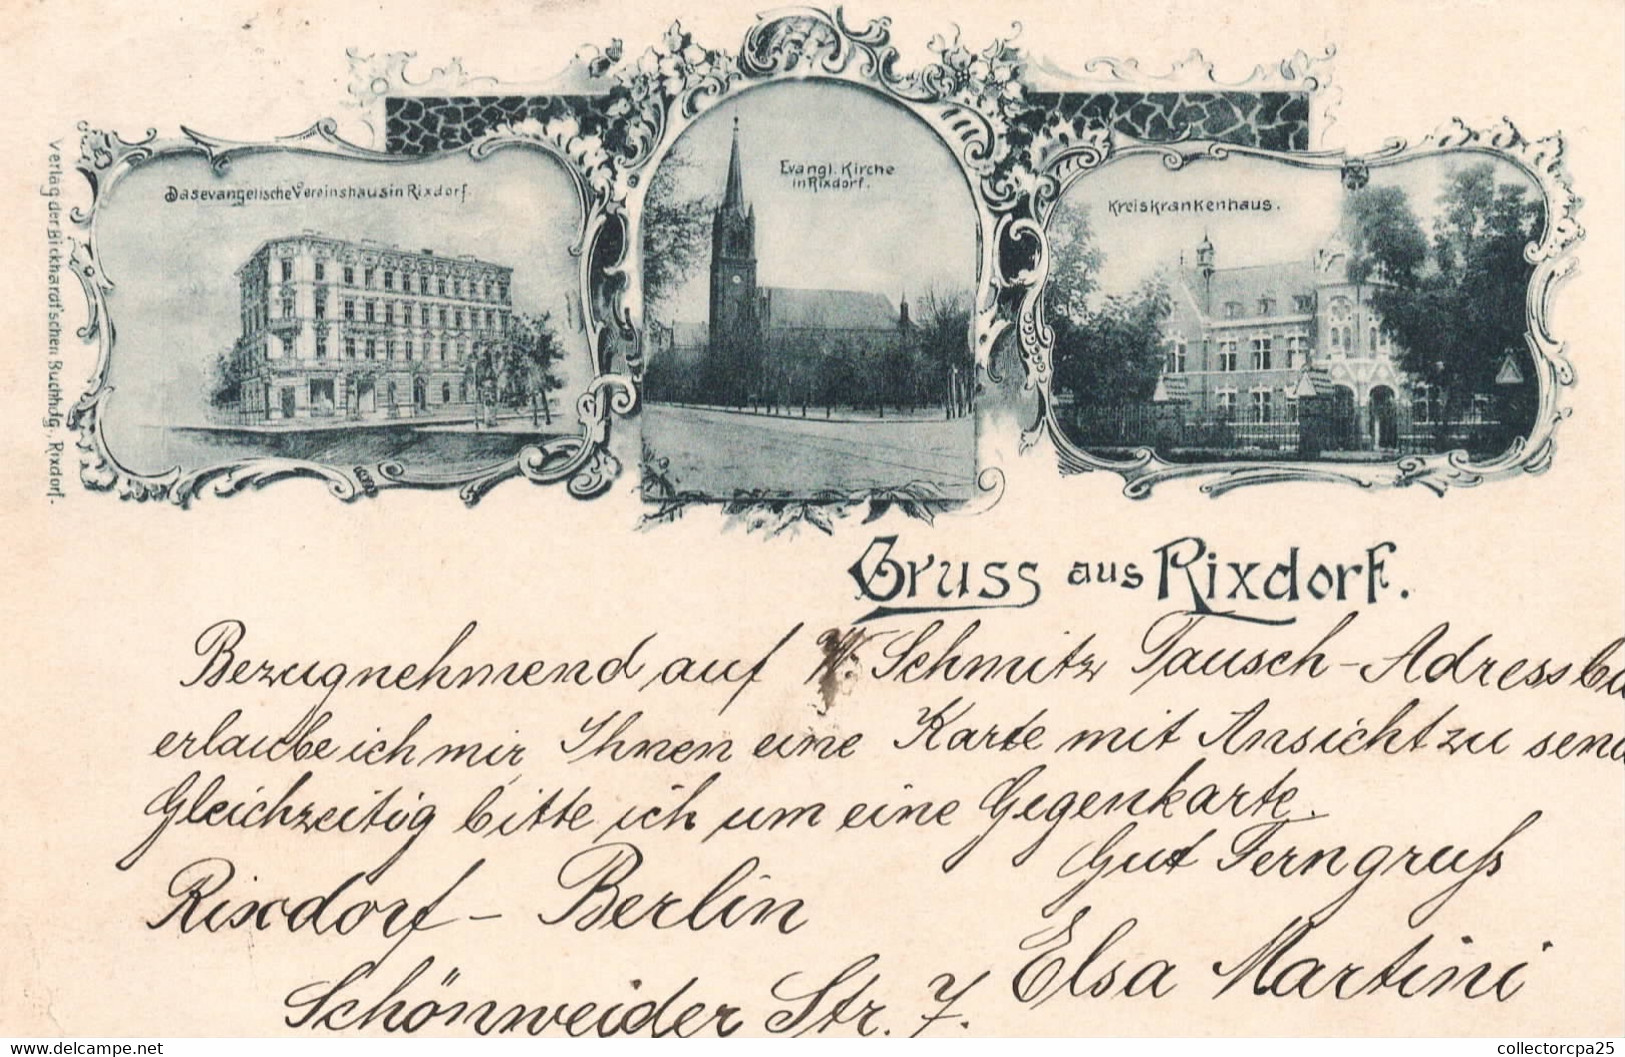 Das evangelische Vereinshaus in Rixdorf.
Evangl. Kirche
in Rixdorf.
Kreiskrankenhaus.
Verlag der Bickhardt'schen Buchhdg., Rixdorf.
Gruss aus Rixdorf.
Bezugnehmend auf W. Schmitz Tausch-Adressbu
erlaube ich mir Ihnen eine Karte mit Ansicht zu send
Gleichzeitig bitte ich um eine Gegenkarte.
Gut Ferngruß
Rixdorf - Berlin
Elsa Martini
Schönweider Str. 7.
www.delcampe.net
collectorcpa25